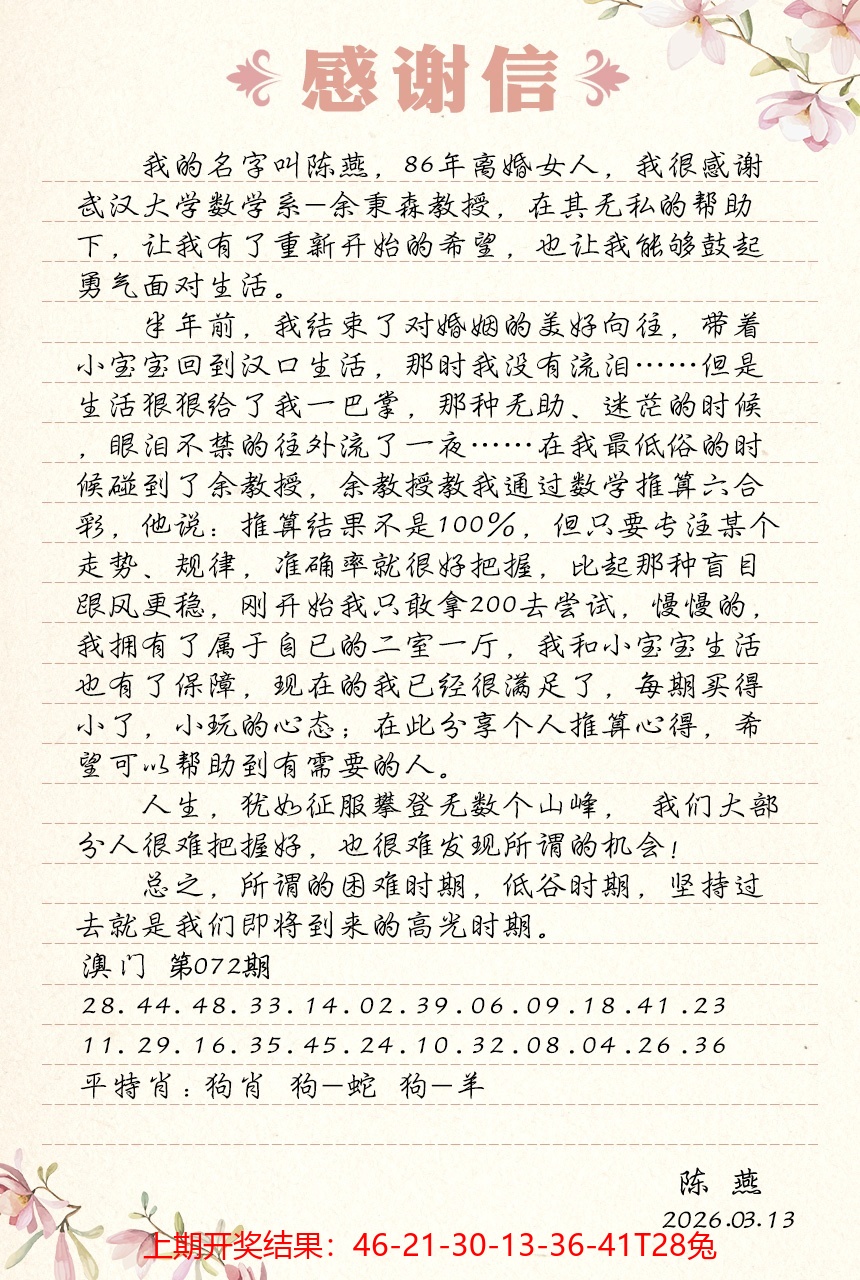 感谢信
我的名字叫陈燕，86年离婚女人，我很感谢
武汉大学数学系—余秉森教授，在其无私的帮助
下，让我有了重新开始的希望，也让我能够鼓起
勇气面对生活。
半年前，我结束了对婚姻的美好向往，带着
小宝宝回到汉口生活，那时我没有流泪……但是
生活狠狠给了我一巴掌，那种无助、迷茫的时候
，眼泪不禁的往外流了一夜……在我最低俗的时
候碰到了余教授，余教授教我通过数学推算六合
彩，他说：推算结果不是100%，但只要专注某个
走势、规律，准确率就很好把握，比起那种盲目
跟风更稳，刚开始我只敢拿200去尝试，慢慢的，
我拥有了属于自己的二室一厅，我和小宝宝生活
也有了保障，现在的我已经很满足了，每期买得
小了，小玩的心态；在此分享个人推算心得，希
望可以帮助到有需要的人。
人生，犹如征服攀登无数个山峰， 我们大部
分人很难把握好，也很难发现所谓的机会！
总之，所谓的困难时期，低谷时期，坚持过
去就是我们即将到来的高光时期。
澳门 第072期
28.44.48.33.14.02.39.06.09.18.41.23
11.29.16.35.45.24.10.32.08.04.26.36
平特肖：狗肖 狗—蛇 狗—羊
陈 燕
2026.03.13
上期开奖结果：46-21-30-13-36-41T28兔